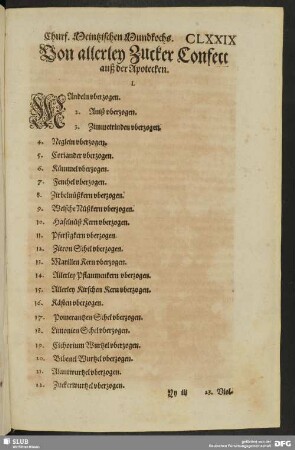 Churf. Meintzischen Mundkochs. CLXXIX
Von allerley Zucker Confect
auß der Apotecken.
1.
MAndeln vberzogen.
2. Aniß vberzogen.
3. Zimmetrinden vberzogen.
4. Neglein vberzogen.
5. Coriander vberzogen.
6. Kümmel vberzogen.
7. Fenchel vberzogen.
8. Zirbelnüßkern vberzogen.
9. Welsche Nüßkern vberzogen.
10. Haselnüß Kern vberzogen.
11. Pfersigkern vberzogen.
12. Zitron Schel vberzogen.
13. Marillen Kern vberzogen.
14. Allerley Pflaumenkern vberzogen.
15. Allerley Kirschen Kern vberzogen.
16. Kästen vberzogen.
17. Pomerantzen Schel vberzogen.
18. Limonien Schel vberzogen.
19. Cichorium Wurtzel vberzogen.
20. Bibenel Wurtzel vberzogen.
21. Alantwurtzel vberzogen.
22. Zuckerwurtzel vberzogen.
Yy iij 23. Viol-
SLUB
DFG